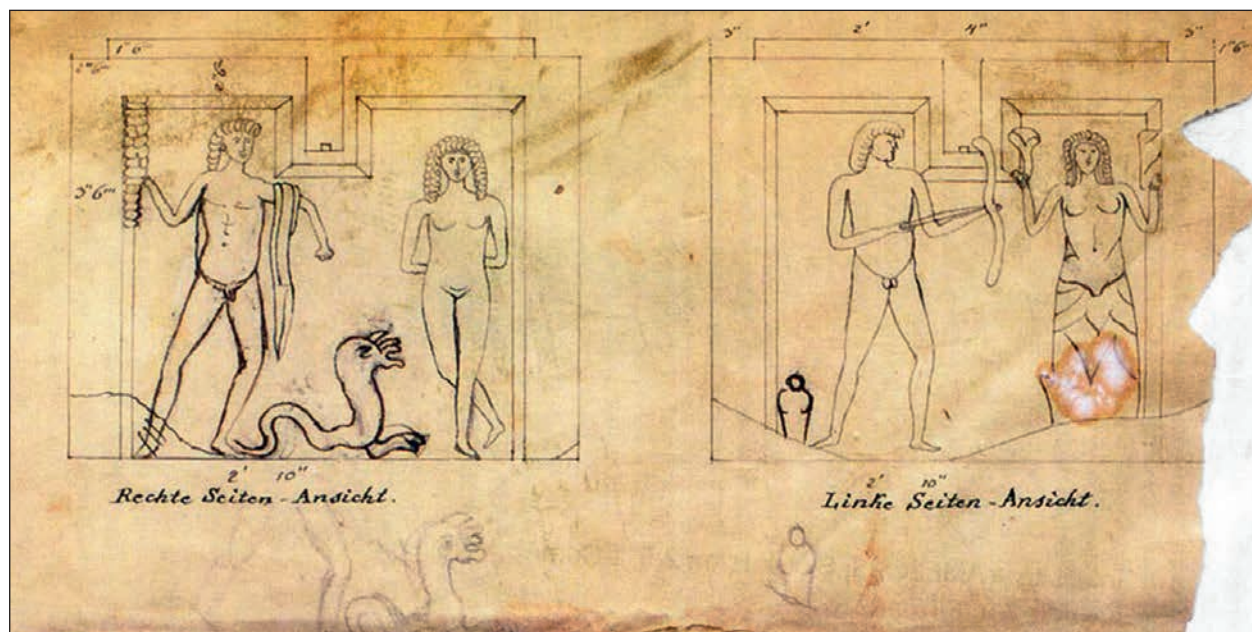 1" 6"'
3" 6"'
2' 10"
Rechte Seiten-Ansicht.
3" 2' 4" 3"
1" 6"'
2' 10"
Linke Seiten-Ansicht.